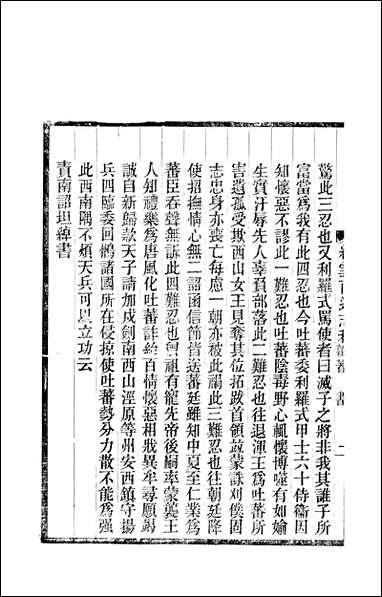 驚此三忍也又利羅式罵使者曰滅子之將非我其誰子所
富當爲我有此四忍也今吐蕃委利羅式甲士六十侍衞因
知懷惡不謬此一難忍也吐蕃陰毒野心輒懷博噬有如媮
生實汙辱先人辜負部落此二難忍也往退渾王爲吐蕃所
害遺孤受欺西山女王見奪其位拓跋首領並蒙誅刈僕固
志忠身亦喪亡每慮一朝亦被此禍此三難忍也往朝廷降
使招撫情心無二詔函信節皆送蕃廷雖知中夏至仁業爲
蕃臣吞聲無訴此四難忍也曾祖有寵先帝後嗣率蒙襲王
人知禮樂爲唐風化吐蕃詐紿百情懷惡相我異牟尋願竭
誠自新歸款天子請加戍劍南西山涇原等州安西鎮守揚
兵四臨委回鶻諸國所在侵掠使吐蕃勢分力散不能爲強
此西南隅不煩天兵可以立功云
責南詔坦綽書